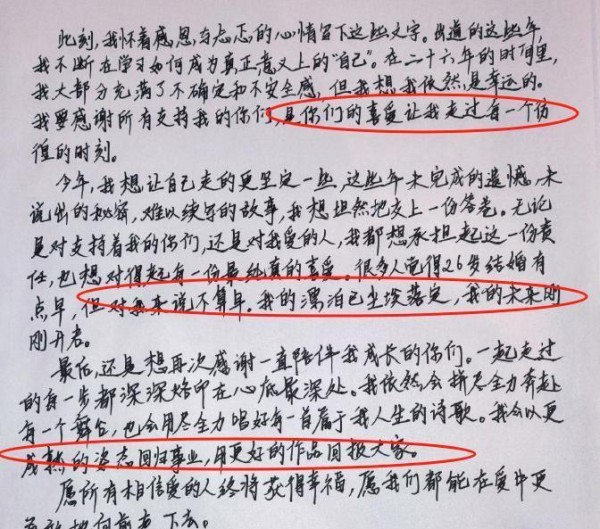 此刻,我怀着感恩与忐忑的心情留下这些文字。出道的这些年,
我不断在学习如何成为真正意义上的“自己”。在二十六年的时间里,
我大部分充满了不确定和不安全感,但我想我依然是幸运的。
我要感谢所有支持我的你们,是你们的喜爱让我走过每一个彷
徨的时刻。
今年,我想让自己走的更坚定一些,这些年未完成的遗憾,未
说出的秘密,难以续写的故事,我想坦然地交上一份答卷。无论
是对支持着我的你们,还是对我爱的人,我都想承担起这一份责
任,也想对得起每一份最纯真的喜爱。很多人觉得26岁结婚有
点早,但对我来说不算早。我的漂泊已尘埃落定,我的未来刚
刚开启。
最后,还是想再次感谢一直陪伴我成长的你们。一起走过
的每一步都深深烙印在心底最深处。我依然会拼尽全力奔赴
每一个舞台,也会用尽全力唱好每一首属于我人生的诗歌。我会以更
成熟的姿态回归事业,用更好的作品回报大家。
愿所有相信爱的人终将获得幸福,愿我们都能在爱中更
地向前走下去。